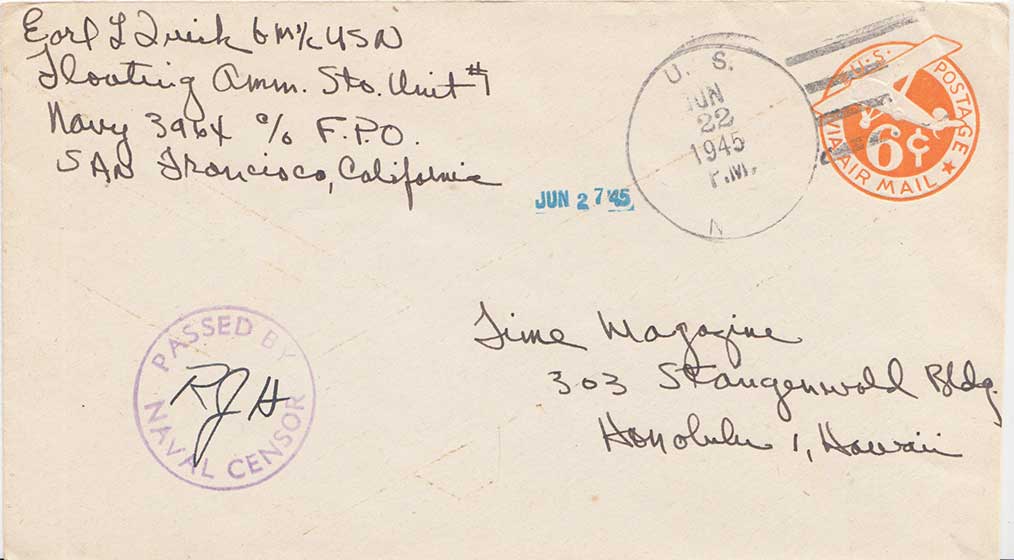 Earl L Quick GM 1/c USN
Floating Amm. Sto. Unit #1
Navy 3964 c/o F.P.O.
SAN Francisco, California
U. S.
JUN
22
1945
P.M.
N
U.S. POSTAGE
6¢
VIA AIR MAIL
JUN 27 '45
PASSED BY
RJH
NAVAL CENSOR
Time Magazine
303 Stangenwald Bldg.
Honolulu 1, Hawaii